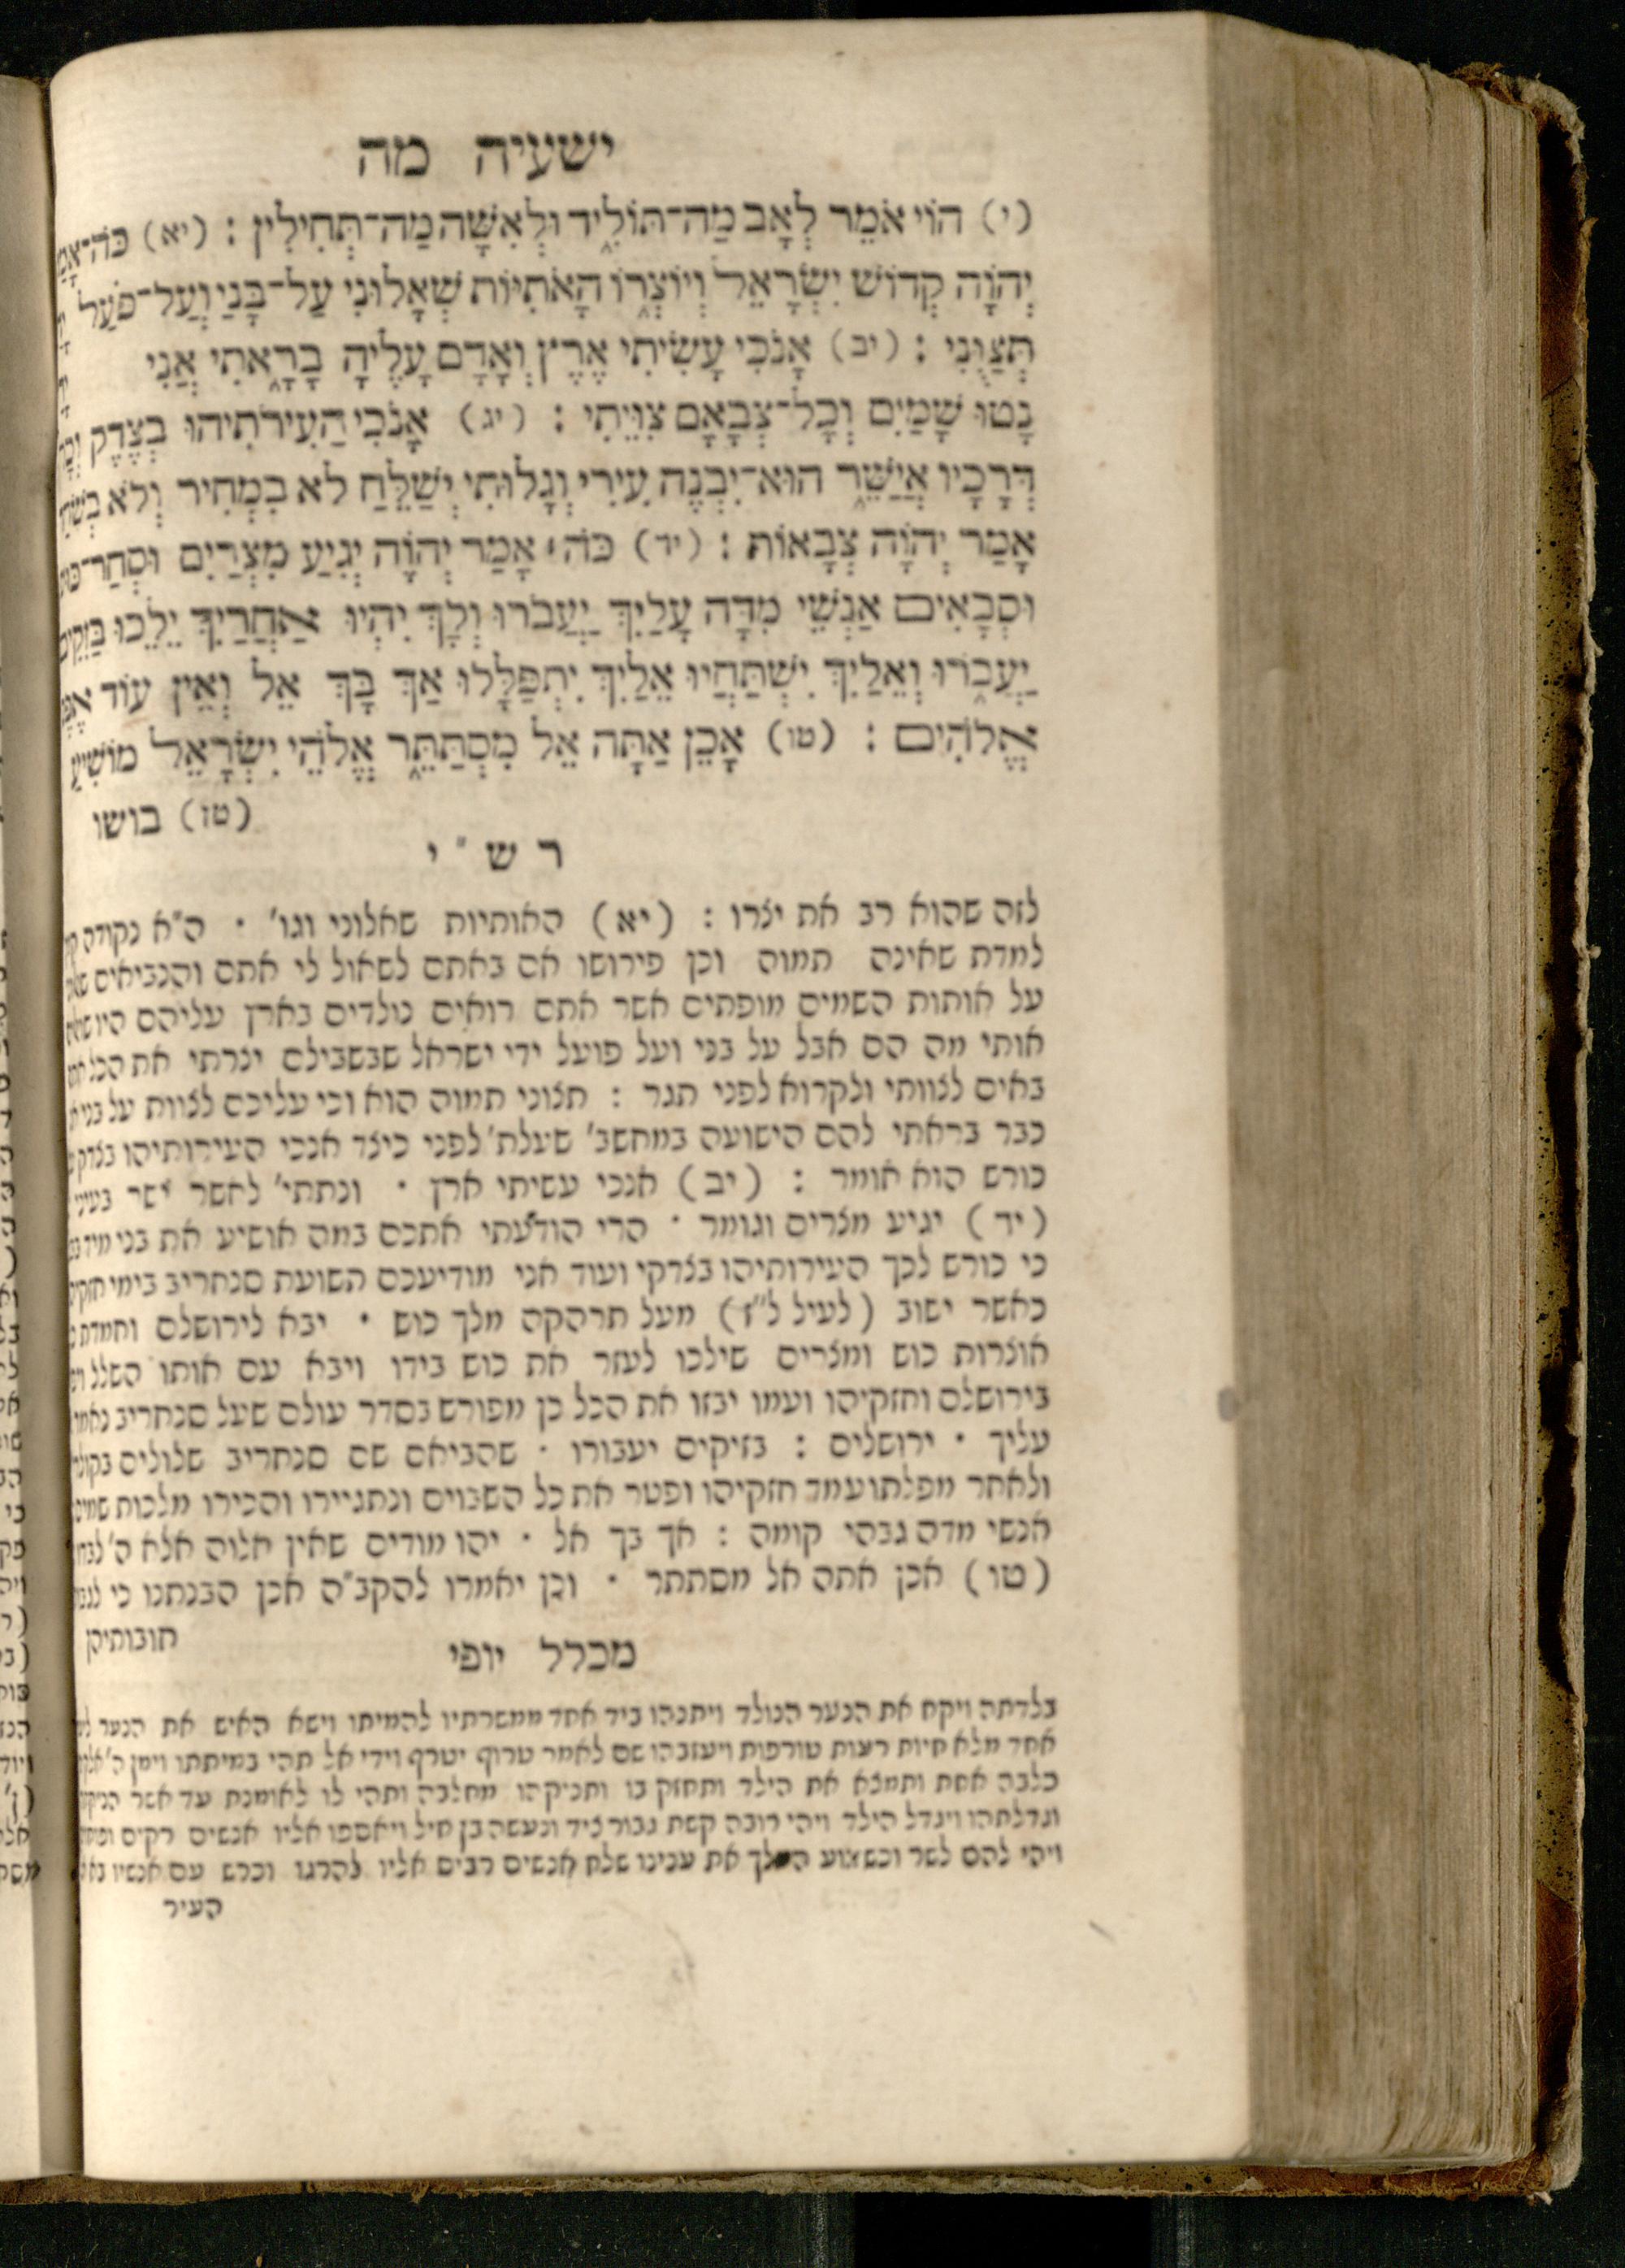 ישעיה מה
(י) הוֹי אֹמֵר לְאָב מַה־תּוֹלִיד וּלְאִשָּׁה מַה־תְּחִילִין : (יא) כֹּה־
יְהֹוָה קְדוֹשׁ יִשְׂרָאֵל וְיוֹצְרוֹ הָאֹתִיּוֹת שְׁאָלוּנִי עַל־בָּנַי וְעַל־פֹּעַל
תְּצַוֻּנִי : (יב) אָנֹכִי עָשִׂיתִי אֶרֶץ וְאָדָם עָלֶיהָ בָרָאתִי אֲנִי
נָטוּ שָׁמַיִם וְכָל־צְבָאָם צִוֵּיתִי : (יג) אָנֹכִי הַעִירֹתִיהוּ בְצֶדֶק
דְּרָכָיו אֲיַשֵּׁר הוּא־יִבְנֶה עִירִי וְגָלוּתִי יְשַׁלֵּחַ לֹא בִמְחִיר וְלֹא
אָמַר יְהֹוָה צְבָאוֹת : (יד) כֹּה אָמַר יְהֹוָה יְגִיעַ מִצְרַיִם וּסְחַר־
וּסְבָאִים אַנְשֵׁי מִדָּה עָלַיִךְ יַעֲבֹרוּ וְלָךְ יִהְיוּ אַחֲרַיִךְ יֵלֵכוּ בַּזִּקִּים
יַעֲבֹרוּ וְאֵלַיִךְ יִשְׁתַּחֲווּ אֵלַיִךְ יִתְפַּלָּלוּ אַךְ בָּךְ אֵל וְאֵין עוֹד
אֱלֹהִים : (טו) אָכֵן אַתָּה אֵל מִסְתַּתֵּר אֱלֹהֵי יִשְׂרָאֵל מוֹשִׁיעַ
(טז) בושו
ר ש " י
לזה שהוא רב את יצרו : (יא) האותיות שאלוני וגו' · ה"א נקודה
למדת שאינה תמוה וכן פירושו אם באתם לשאול לי אתם והנביאים
על אותות השמים מופתים אשר אתם רואים נולדים בארץ עליהם היו
אותי מה הם אבל על בני ועל פועל ידי ישראל שבשבילם יצרתי את הכל
באים לצוותי ולקרוא לפני תגר : תצוני תמוה הוא וכי עליכם לצוות על בני
כבר בראתי להם הישועה במחשב' שעלת' לפני כיצד אנכי העירותיהו
כורש הוא אומר : (יב) אנכי עשיתי ארץ · ונתתי' לאשר ישר בעיני
(יד) יגיע מצרים וגומר · הרי הודעתי אתכם במה אושיע את בני מיד
כי כורש לכך העירותיהו בצדקי ועוד אני מודיעכם תשועת סנחריב בימי
כאשר ישוב (לעיל ל"ז) מעל תרהקה מלך כוש · יבא לירושלם וחמדת
אוצרות כוש ומצרים שילכו לעזר את כוש בידו ויבא עם אותו השלל
בירושלם וחזקיהו ועמו יבזו את הכל כן מפורש בסדר עולם שעל סנחריב
עליך · ירושלים : בזיקים יעבורו · שהביאם שם סנחריב שלולים
ולאחר מפלתו עמד חזקיהו ופטר את כל השבוים ונתגיירו והכירו מלכות
אנשי מדה גבהי קומה : אך בך אל · יהו מודים שאין אלוה אלא ה'
(טו) אכן אתה אל מסתתר · וכן יאמרו להקב"ה אכן הבנתנו כי
חובותיהן
מכלל יופי
בלדתה ויקח את הנער הנולד ויתנהו ביד אחד ממשרתיו להמיתו וישא האיש את הנער
אחד מלא חיות רעות טורפות ויעזבהו שם לאמר טרוף יטרף וידי אל תהי במיתתו וימן ה'
כלבה אחת ותמצא את הילד ותחזק בו ותניקהו מחלבה ותהי לו לאומנת עד אשר
וגדלתהו ויגדל הילד ויהי רובה קשת גבור ציד ונעשה בן חיל ויאספו אליו אנשים רקים
ויהי להם לשר וכשמוע המלך את ענינו שלח אנשים רבים אליו להרגו וכרש עם אנשיו
העיר